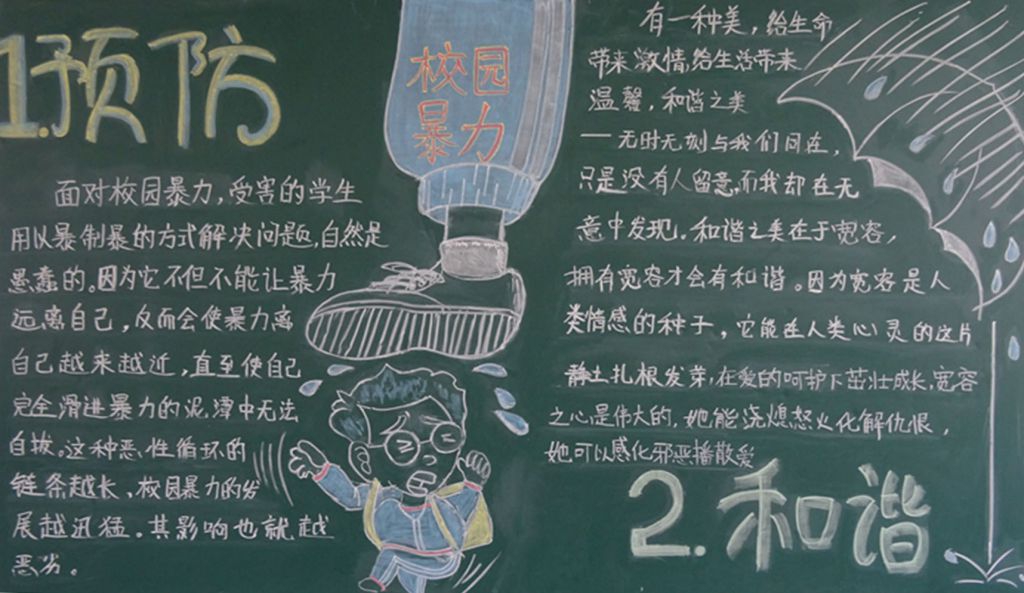 1.预防
面对校园暴力,受害的学生
用以暴制暴的方式解决问题,自然是
愚蠢的。因为它不但不能让暴力
远离自己,反而会使暴力离
自己越来越近,直至使自己
完全滑进暴力的泥潭中无法
自拔。这种恶性循环的
链条越长,校园暴力的发
展越迅猛。其影响也就越
恶劣。
校园
暴力
有一种美,给生命
带来激情,给生活带来
温馨,和谐之美
一无时无刻与我们同在,
只是没有人留意,而我却在无
意中发现。和谐之美在于宽容,
拥有宽容才会有和谐。因为宽容是人
类情感的种子,它能在人类心灵的这片
静土扎根发芽,在爱的呵护下茁壮成长,宽容
之心是伟大的,她能浇熄怒火化解仇恨,
她可以感化邪恶播散爱
2.和谐